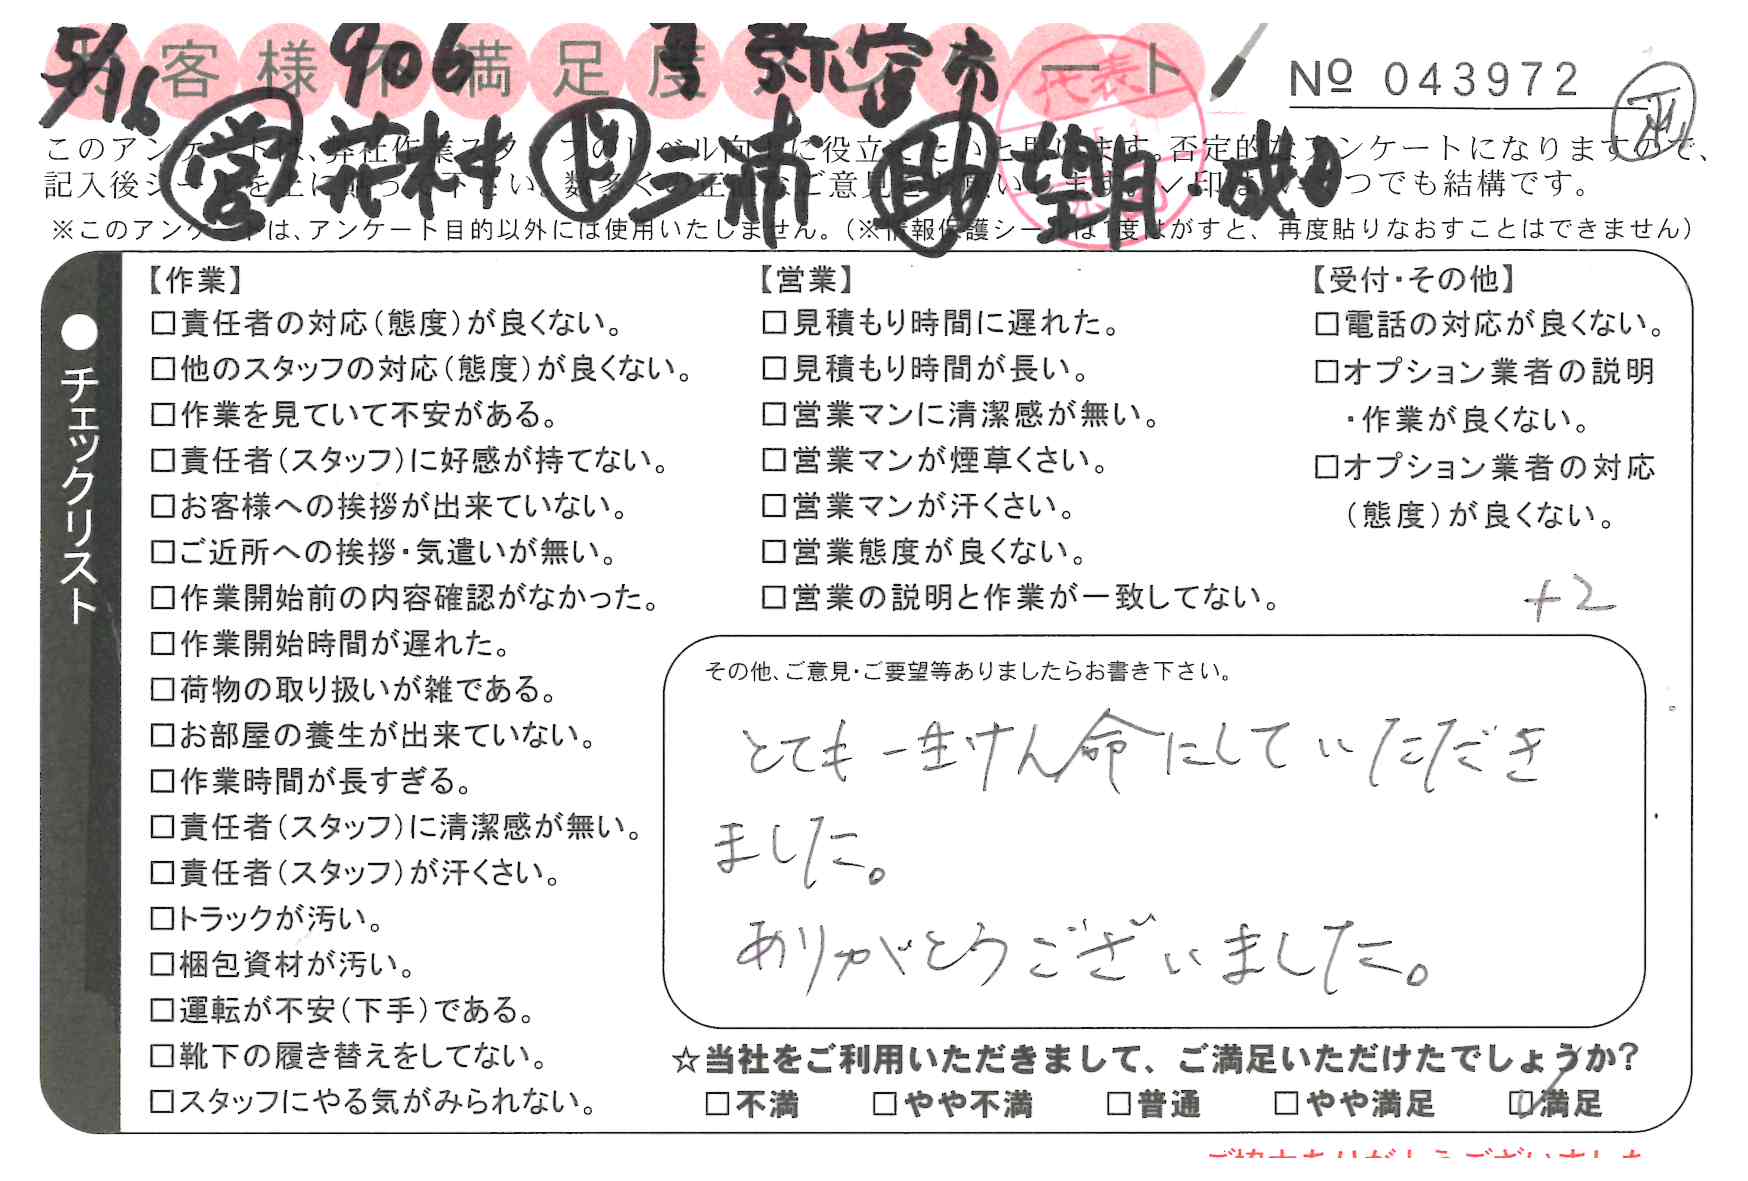 お客様不満足度アンケート
5/16 906 弥富市
№ 043972
営 花村 三浦 助 望月 成田
代表
このアンケートは、弊社作業スタッフのレベル向上に役立てたいと思います。否定的なアンケートになりますので、
記入後シールを上に貼って下さい。数多くの正直なご意見お願いします。✓印はいくつでも結構です。
※このアンケートは、アンケート目的以外には使用いたしません。（※情報保護シールは1度はがすと、再度貼りなおすことはできません）
●チェックリスト
【作業】
□責任者の対応（態度）が良くない。
□他のスタッフの対応（態度）が良くない。
□作業を見ていて不安がある。
□責任者（スタッフ）に好感が持てない。
□お客様への挨拶が出来ていない。
□ご近所への挨拶・気遣いが無い。
□作業開始前の内容確認がなかった。
□作業開始時間が遅れた。
□荷物の取り扱いが雑である。
□お部屋の養生が出来ていない。
□作業時間が長すぎる。
□責任者（スタッフ）に清潔感が無い。
□責任者（スタッフ）が汗くさい。
□トラックが汚い。
□梱包資材が汚い。
□運転が不安（下手）である。
□靴下の履き替えをしてない。
□スタッフにやる気がみられない。
【営業】
□見積もり時間に遅れた。
□見積もり時間が長い。
□営業マンに清潔感が無い。
□営業マンが煙草くさい。
□営業マンが汗くさい。
□営業態度が良くない。
□営業の説明と作業が一致してない。
【受付・その他】
□電話の対応が良くない。
□オプション業者の説明
・作業が良くない。
□オプション業者の対応
（態度）が良くない。
+2
その他、ご意見・ご要望等ありましたらお書き下さい。
とても一生けん命にしていただき
ました。
ありがとうございました。
☆当社をご利用いただきまして、ご満足いただけたでしょうか？
□不満 □やや不満 □普通 □やや満足 ☑満足
ご協力ありがとうございました